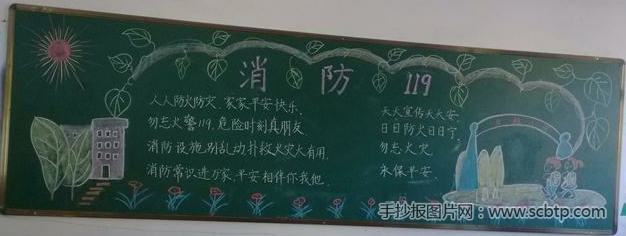 消 防 119
人人防火防灾,家家平安快乐.
勿忘火警119,危险时刻真朋友
消防设施别乱动扑救火灾大有用.
消防常识进万家,平安相伴你我他.
天天宣传天天安,
日日防火日日宁,
勿忘火灾,
永保平安.
手抄报图片网:www.scbtp.com